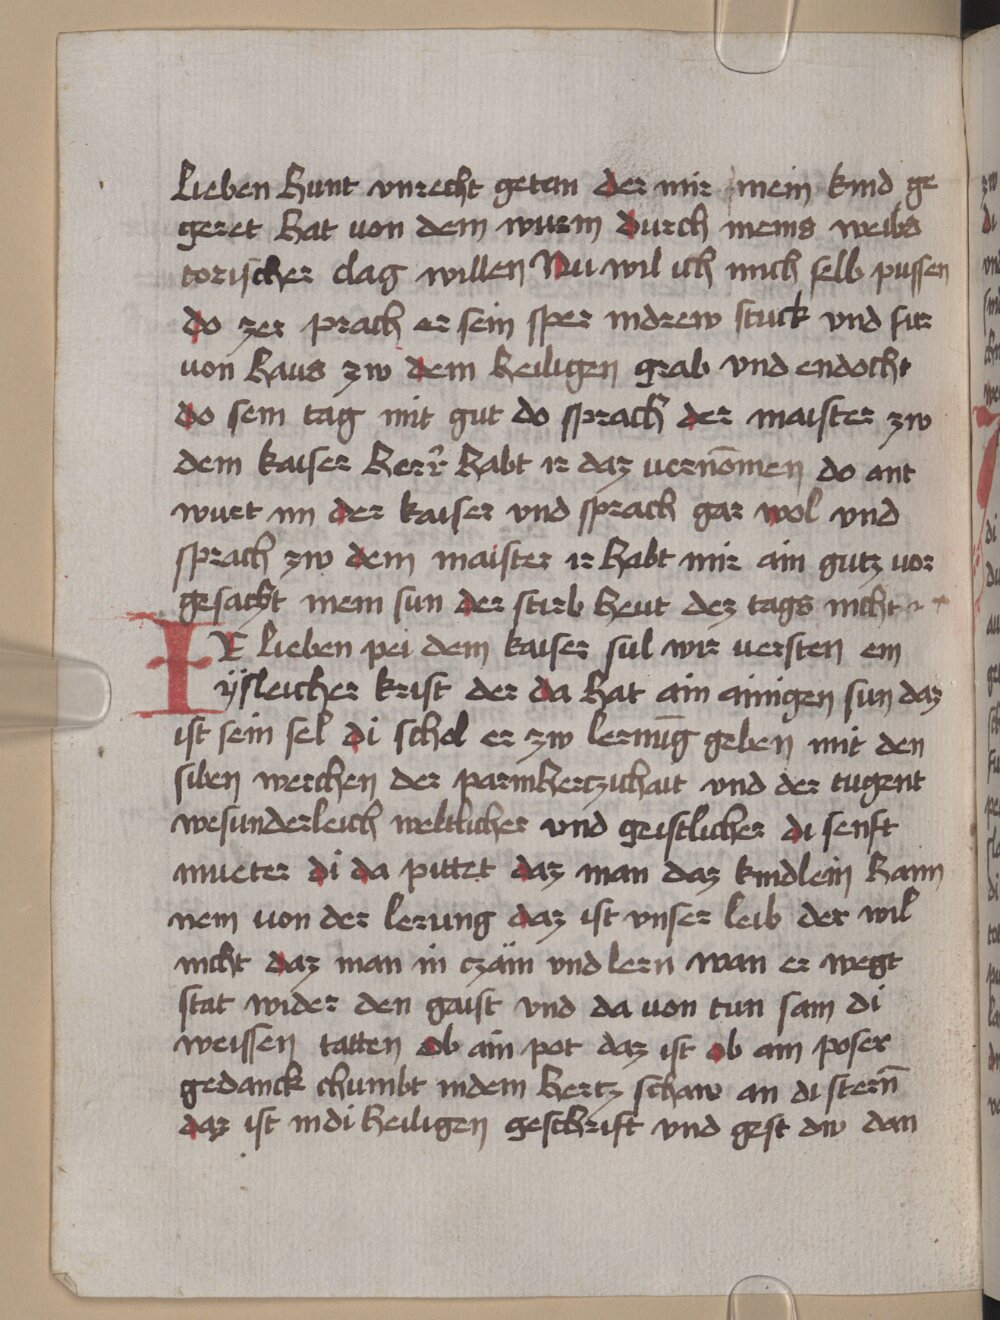 lieben hunt vnrecht getan der mir mein kind ge
geret hat von dem wurm durch meins weibs
torischer clag willen Nu wil ich mich selb pussen
do zer prach er sein sper indrew stuck vnd fur
von haus zw dem heiligen grab vnd endocht
do sein tag mit gut do sprach der maister zw
dem kaiser herr habt ir daz vernōmen do ant
wurt im der kaiser vnd sprach gar wol vnd
sprach zw dem maister ir habt mir ain gutz vor
gesacht mein sun der stirb heut dez tags nicht
IR lieben pei dem kaiser sul wir versten ein
ÿsleicher krist der da hat ain ainigen sun daz
ist sein sel di schol er zw lernūg geben mit den
siben werchen der parmherczichait vnd der tugent
wesunderleich weltlicher vnd geistlicher di senft
mueter di da pittet daz man daz kindlein haim
nem von der lerung daz ist vnser leib der wil
nicht daz man in czäm vnd lern wan er wegt
stat wider den gaist vnd da von tun sam di
weissen tatten ob ain pot daz ist ob ain poser
gedanck chumbt indem hertz schaw an di stern̄
daz ist indi heiligen geschrift vnd gest dw dan